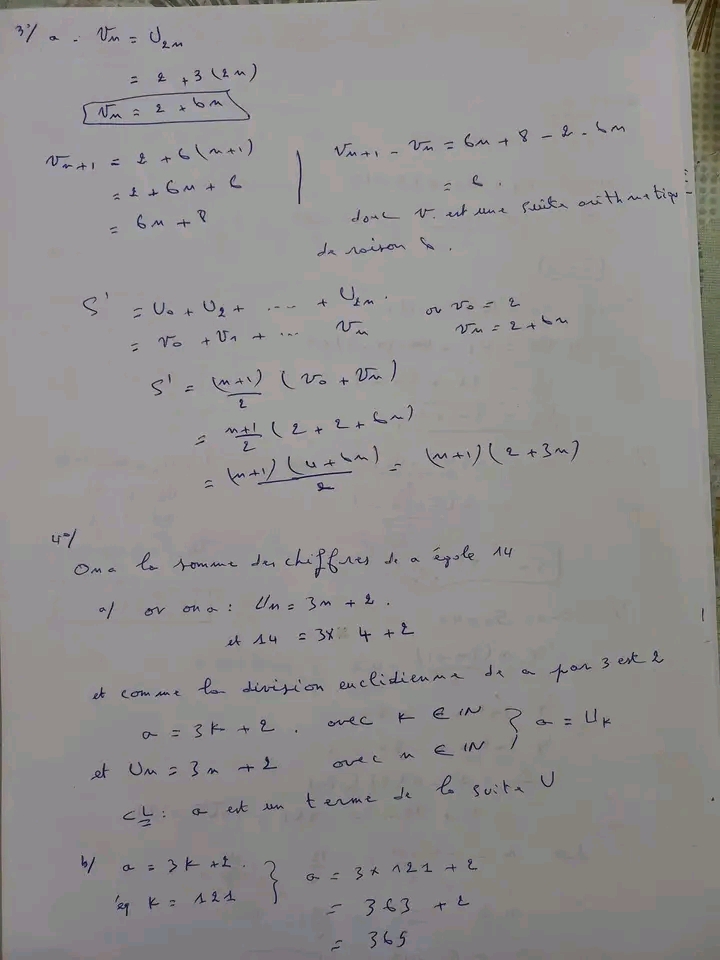 3°/ a - Vn = U2n
= 2 + 3(2n)
Vn = 2 + 6n
Vn+1 = 2 + 6(n+1)
= 2 + 6n + 6
= 6n + 8
Vn+1 - Vn = 6n + 8 - 2 - 6n
= 6.
donc v. est une suite arithmetique
de raison 6.
S' = U0 + U2 + ..... + U2n.
= v0 + v1 + ... Vn
or v0 = 2
Vn = 2 + 6n
S' = (n+1)/2 (v0 + Vn)
= n+1/2 (2 + 2 + 6n)
= (n+1)(4+6n)/2 = (n+1)(2+3n)
4°/
On a la somme des chiffres de a égale 14
a/ or on a : Un = 3n + 2.
et 14 = 3x 4 + 2
et comme la division euclidienne de a par 3 est 2
a = 3k + 2. avec k ∈ IN
et Un = 3n + 2 avec n ∈ IN } a = Uk
CL : a est un terme de la suite U
b/ a = 3k + 2.
k = 121 } a = 3 x 121 + 2
= 363 + 2
= 365